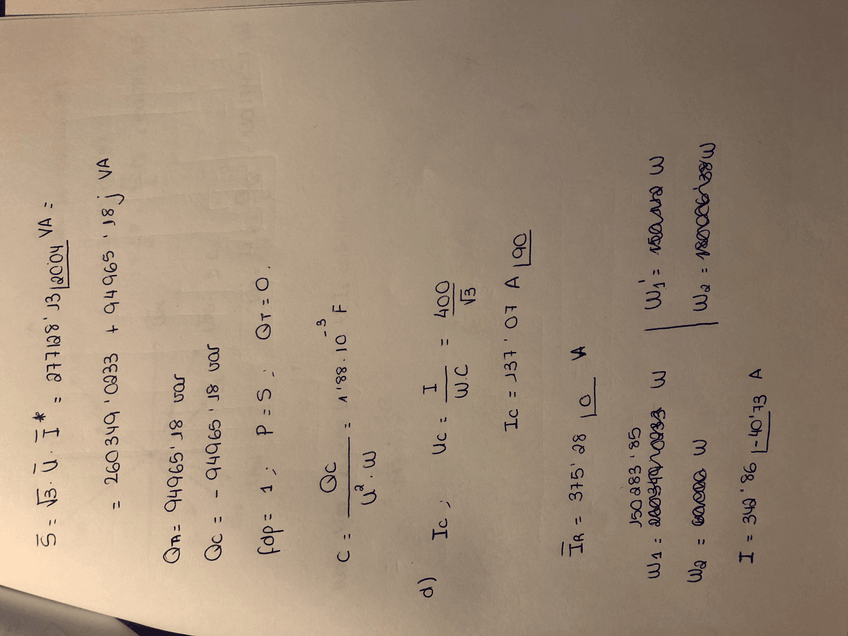 S̅ = √3 · U̅ · I̅* = 277128'13 |20'04 VA =
= 260349'0233 + 94965'18j VA
QA = 94965'18 var
QC = - 94965'18 var
fdp = 1 ; P = S ; QT = 0.
C = QC / U² · W = 1'88 · 10⁻³ F
d) Ic ; Uc = I / W.C = 400 / √3
Ic = 137'07 A |90
I̅R = 375'28 |0 A
150283'85
W1 = W | W1' = W
W2 = W | W2 = W
I = 342'86 |-40'73 A